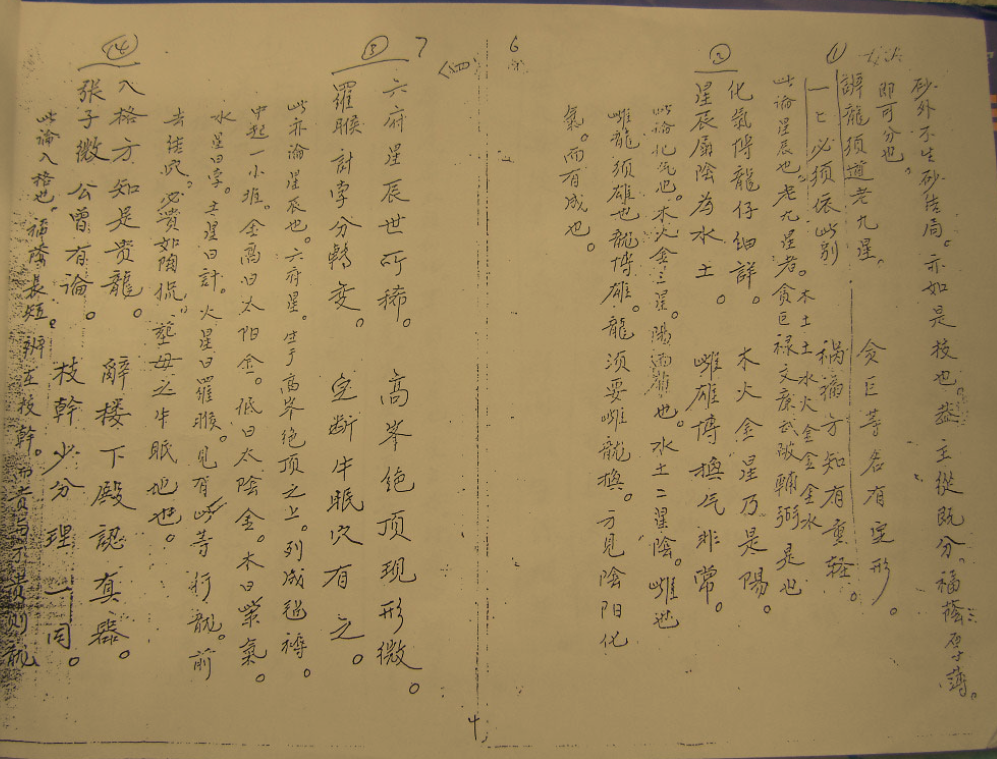 砂外不生砂结局。亦如是枝也。盖主從既分。福蔭厚薄。
即可分也。
辦龍須道老九星。 貪巨等名有定形。
一七必须依此別 祸福方知有重轻。
此論星辰也。老九星者。貪巨禄文廉武破輔弼是也
木土土水火金金金水
化氣博龍仔细詳。 木火金星乃是陽。
星辰属陰為水土。 雌雄博换气非常。
此論化气也。木火金三星。陽也。水土二星陰。雌也
雌龍须雄也龍博雄。龍须要雌龍换。方見陰阳化
氣。而有成也。
6
7
〈四〉
⑤
六府星辰世所稀。 高峯绝顶现形微。
羅睺計孛分轉变。 定断牛眠穴有之。
此亦論星辰也。六府星。生于高峯绝顶之上。列成
中起一小堆。金高曰太阳金。低曰太陰金。木曰紫氣。
水星曰孛。土星曰計。火星曰羅睺。見有此等行龍。前
去结穴。必贵如陶侃。塟母之牛眠地也。
⑭
入格方知是贵龍。 辭楼下殿認真器。
張子微公曾有論。 枝幹少分理一同。
此論入格也。福蔭長短。辨在枝幹。而贵与不贵则龍